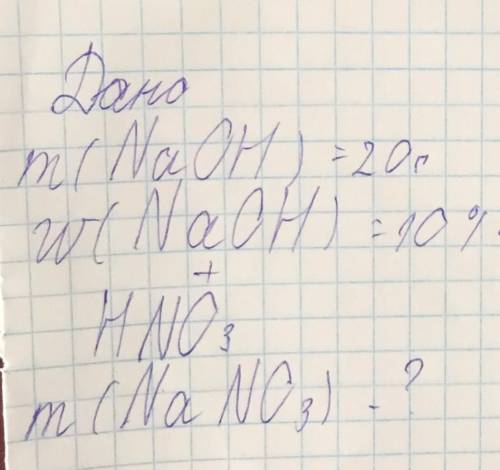 Дано
m(NaOH) = 20г
w(NaOH) = 10%
+
HNO₃
m(NaNO₃) - ?